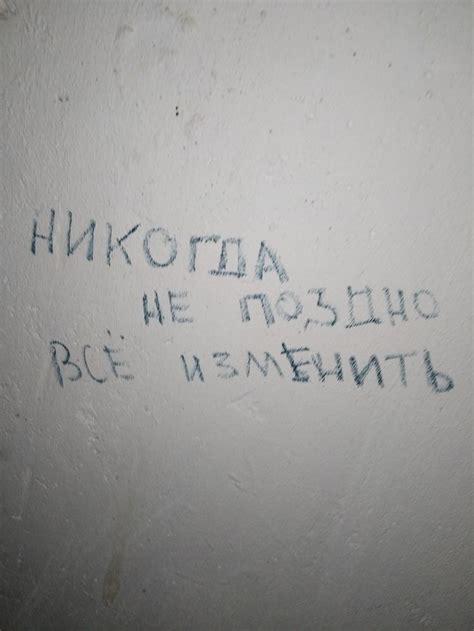 НИКОГДА
НЕ ПОЗДНО
ВСЁ ИЗМЕНИТЬ